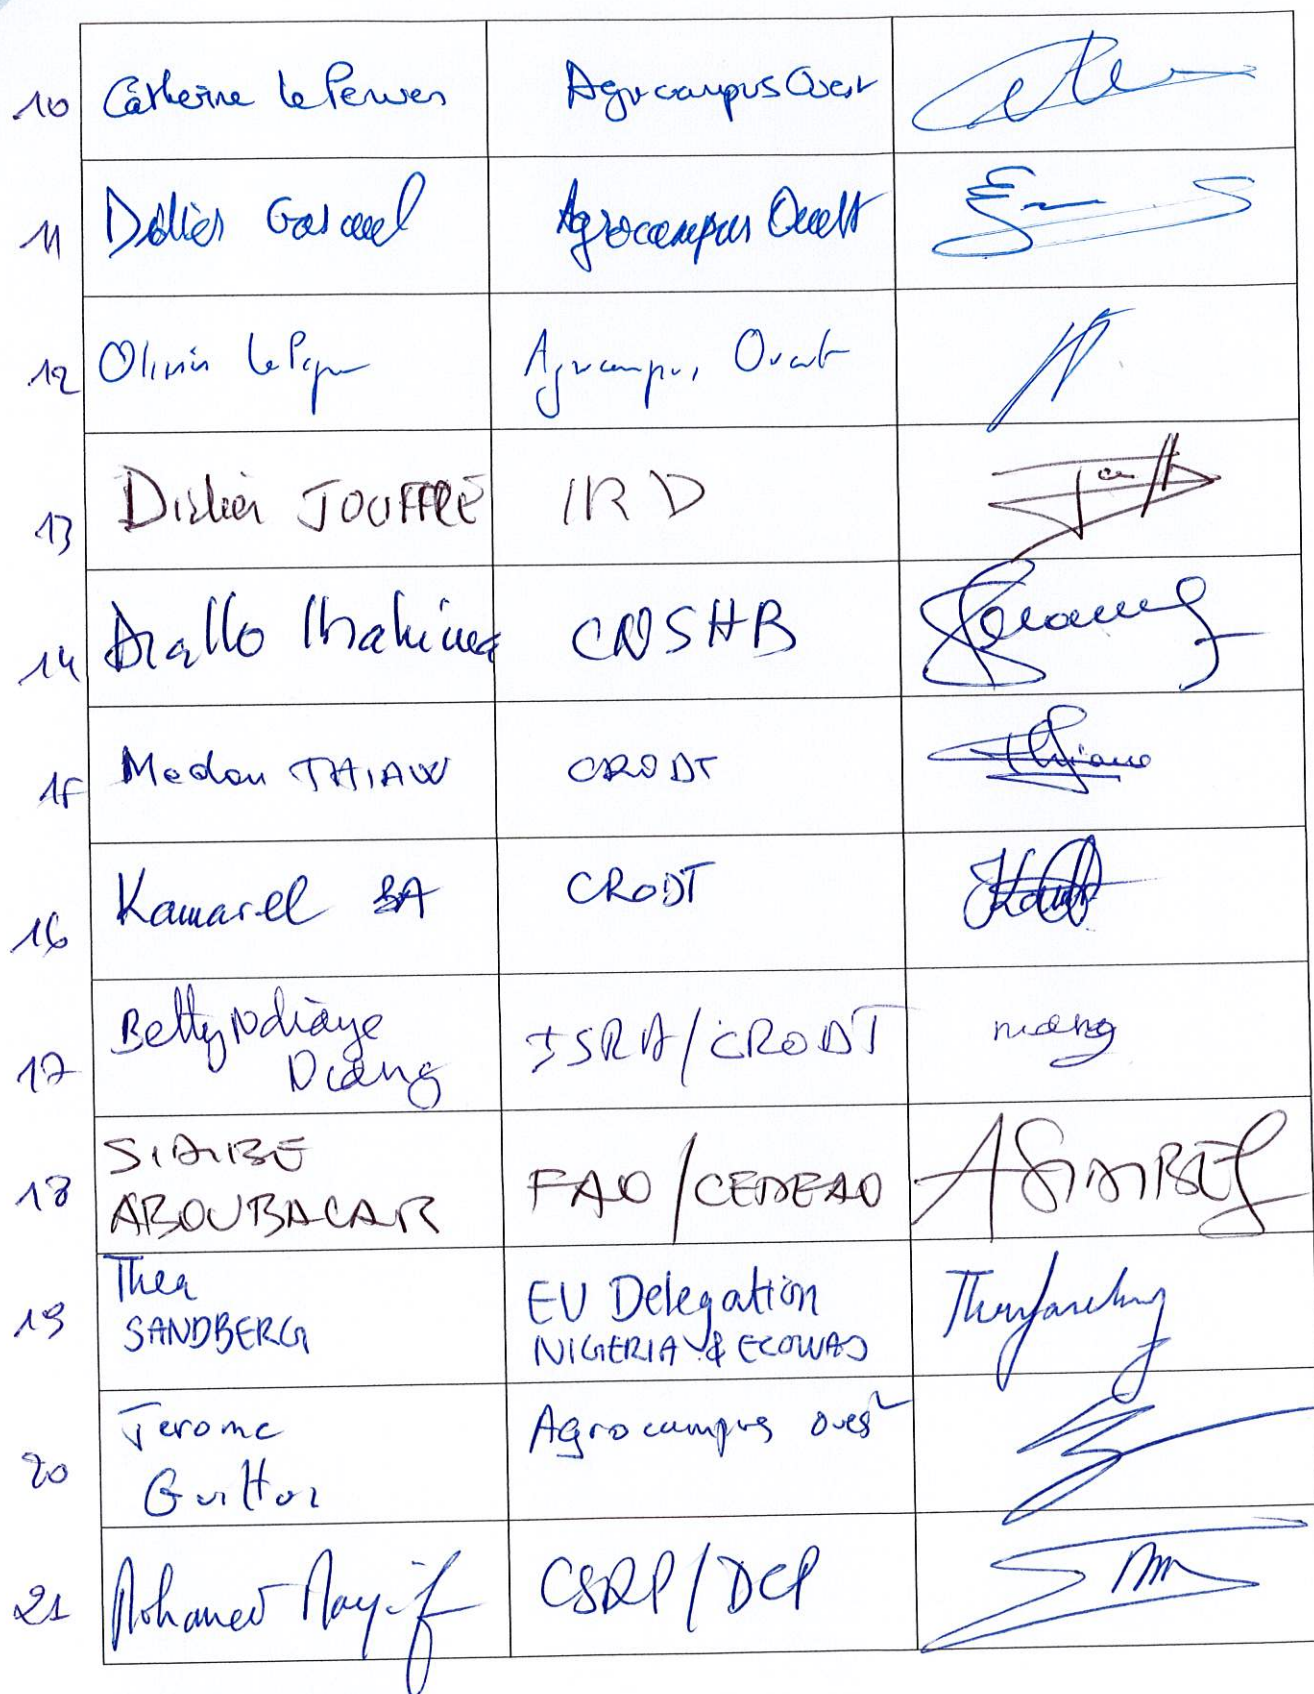 10 Catherine Le Penven Agrocampus Ouest
11 Didier Gascuel Agrocampus Ouest
12 Olivier Le Pape Agrocampus Ouest
13 Didier JOUFFRE IRD
14 Diallo Ibrahima CNSHB
15 Modou THIAW CRODT
16 Kamarel BA CRODT
17 Betty Ndiaye ISRA/CRODT
Niang niang
18 SIDIBÉ FAO/CEDEAO ASIDIBE
ABOUBACAR
19 Thea EU Delegation
SANDBERG NIGERIA & ECOWAS
20 Jerome Agrocampus ouest
Guitton
21 Mohamed CSRP/DCP